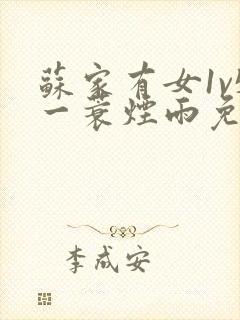 蘇家有女1v
一蓑煙雨免
李成安